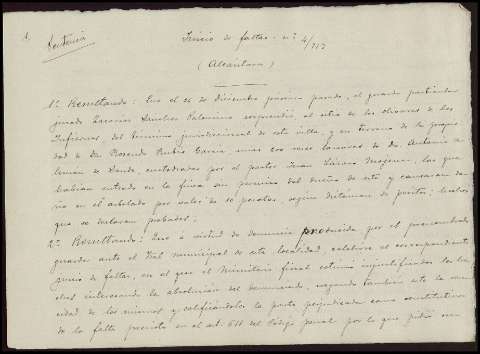 Sentencia
Juicio de faltas - nº 4/917
(Alcántara)
1º Resultando: Que el 26 de diciembre próximo pasado, el guarda particular
jurado Zacarías Sánchez Palomino sorprendió, al sitio de los olivares de los
Infiernos, del término jurisdiccional de esta villa, y en terreno de la propie-
dad de Dn Rosendo Rubio García unas cabras de Dn Antonio
de Sande, custodiadas por el pastor Juan, las que
habían entrado en la finca sin permiso del dueño de esta y causaron da-
ño en el arbolado por valor de 10 pesetas, según dictamen de peritos; hechos
que se declaran probados.
2º Resultando: Que á virtud de denuncia producida por el mencionado
guarda ante el Tbal municipal de esta localidad, celebróse el correspondiente
juicio de faltas, en el que el Ministerio fiscal estimó injustificados los he-
chos interesando la absolución del denunciado, negando también este la vera-
cidad de los mismos y calificándolos la parte perjudicada como constitutivos
de la falta prevista en el art. 611 del Código penal por lo que pidió